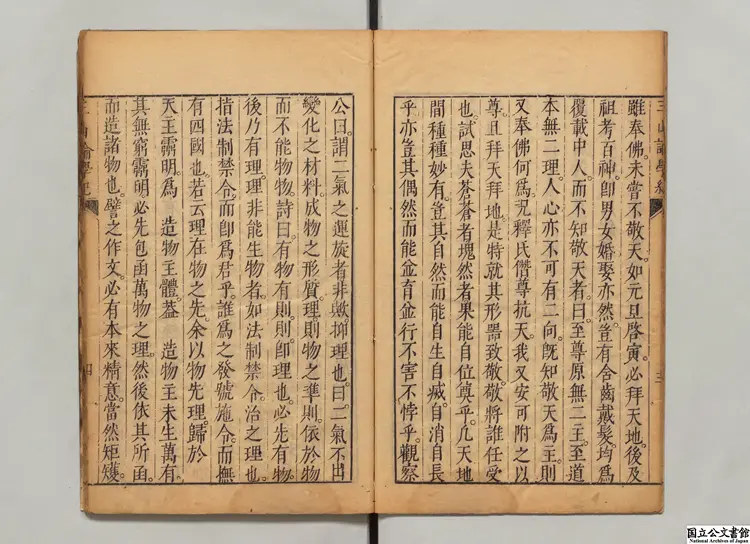 三山論學紀
三
雖奉佛。未嘗不敬天。如元旦啓寅。必拜天地。後及
祖考百神。卽男女婚娶亦然。豈有含齒戴髮。均爲
覆載中人。而不知敬天者。曰。至尊原無二主。至道
本無二理。人心亦不可有二向。旣知敬天爲主。則
又奉佛何爲。况釋氏僭尊抗天。我又安可附之以
尊。且拜天拜地。是特就其形器致敬。敬將誰任受
也。試思夫蒼蒼者塊然者。果能自位奠乎。凡天地
間種種妙有。豈其自然而能自生自臧。自消自長
乎。亦豈其偶然而能並育並行。不害不悖乎。觀察
公曰。謂二氣之運旋者非歟。抑理也。曰。二氣不出
變化之材料。成物之形質。理則物之準則。依於物
而不能物物。詩曰。有物有則。則卽理也。必先有物。
後乃有理。理非能生物者。如法制禁令。治之理也。
指法制禁令。而卽爲君乎。誰爲之發號施令。而撫
有四國也。若云理在物之先。余以物先理。歸於
天主靈明。爲 造物主體。葢 造物主未生萬有。
其無窮靈明。必先包函萬物之理。然後依其所函。
而造諸物也。譬之作文。必有本來精意。當然矩矱。
三山論學紀
四
国立公文書館
National Archives of Japan